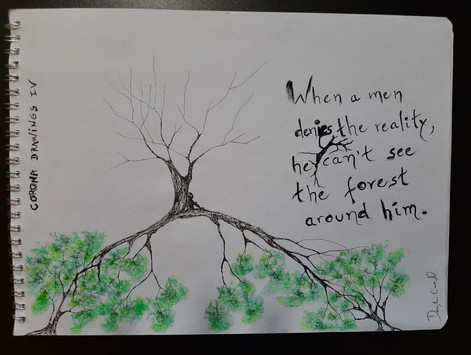 CORONA DRAWINGS IV
When a men
denies the reality,
he can't see
the forest
around him.